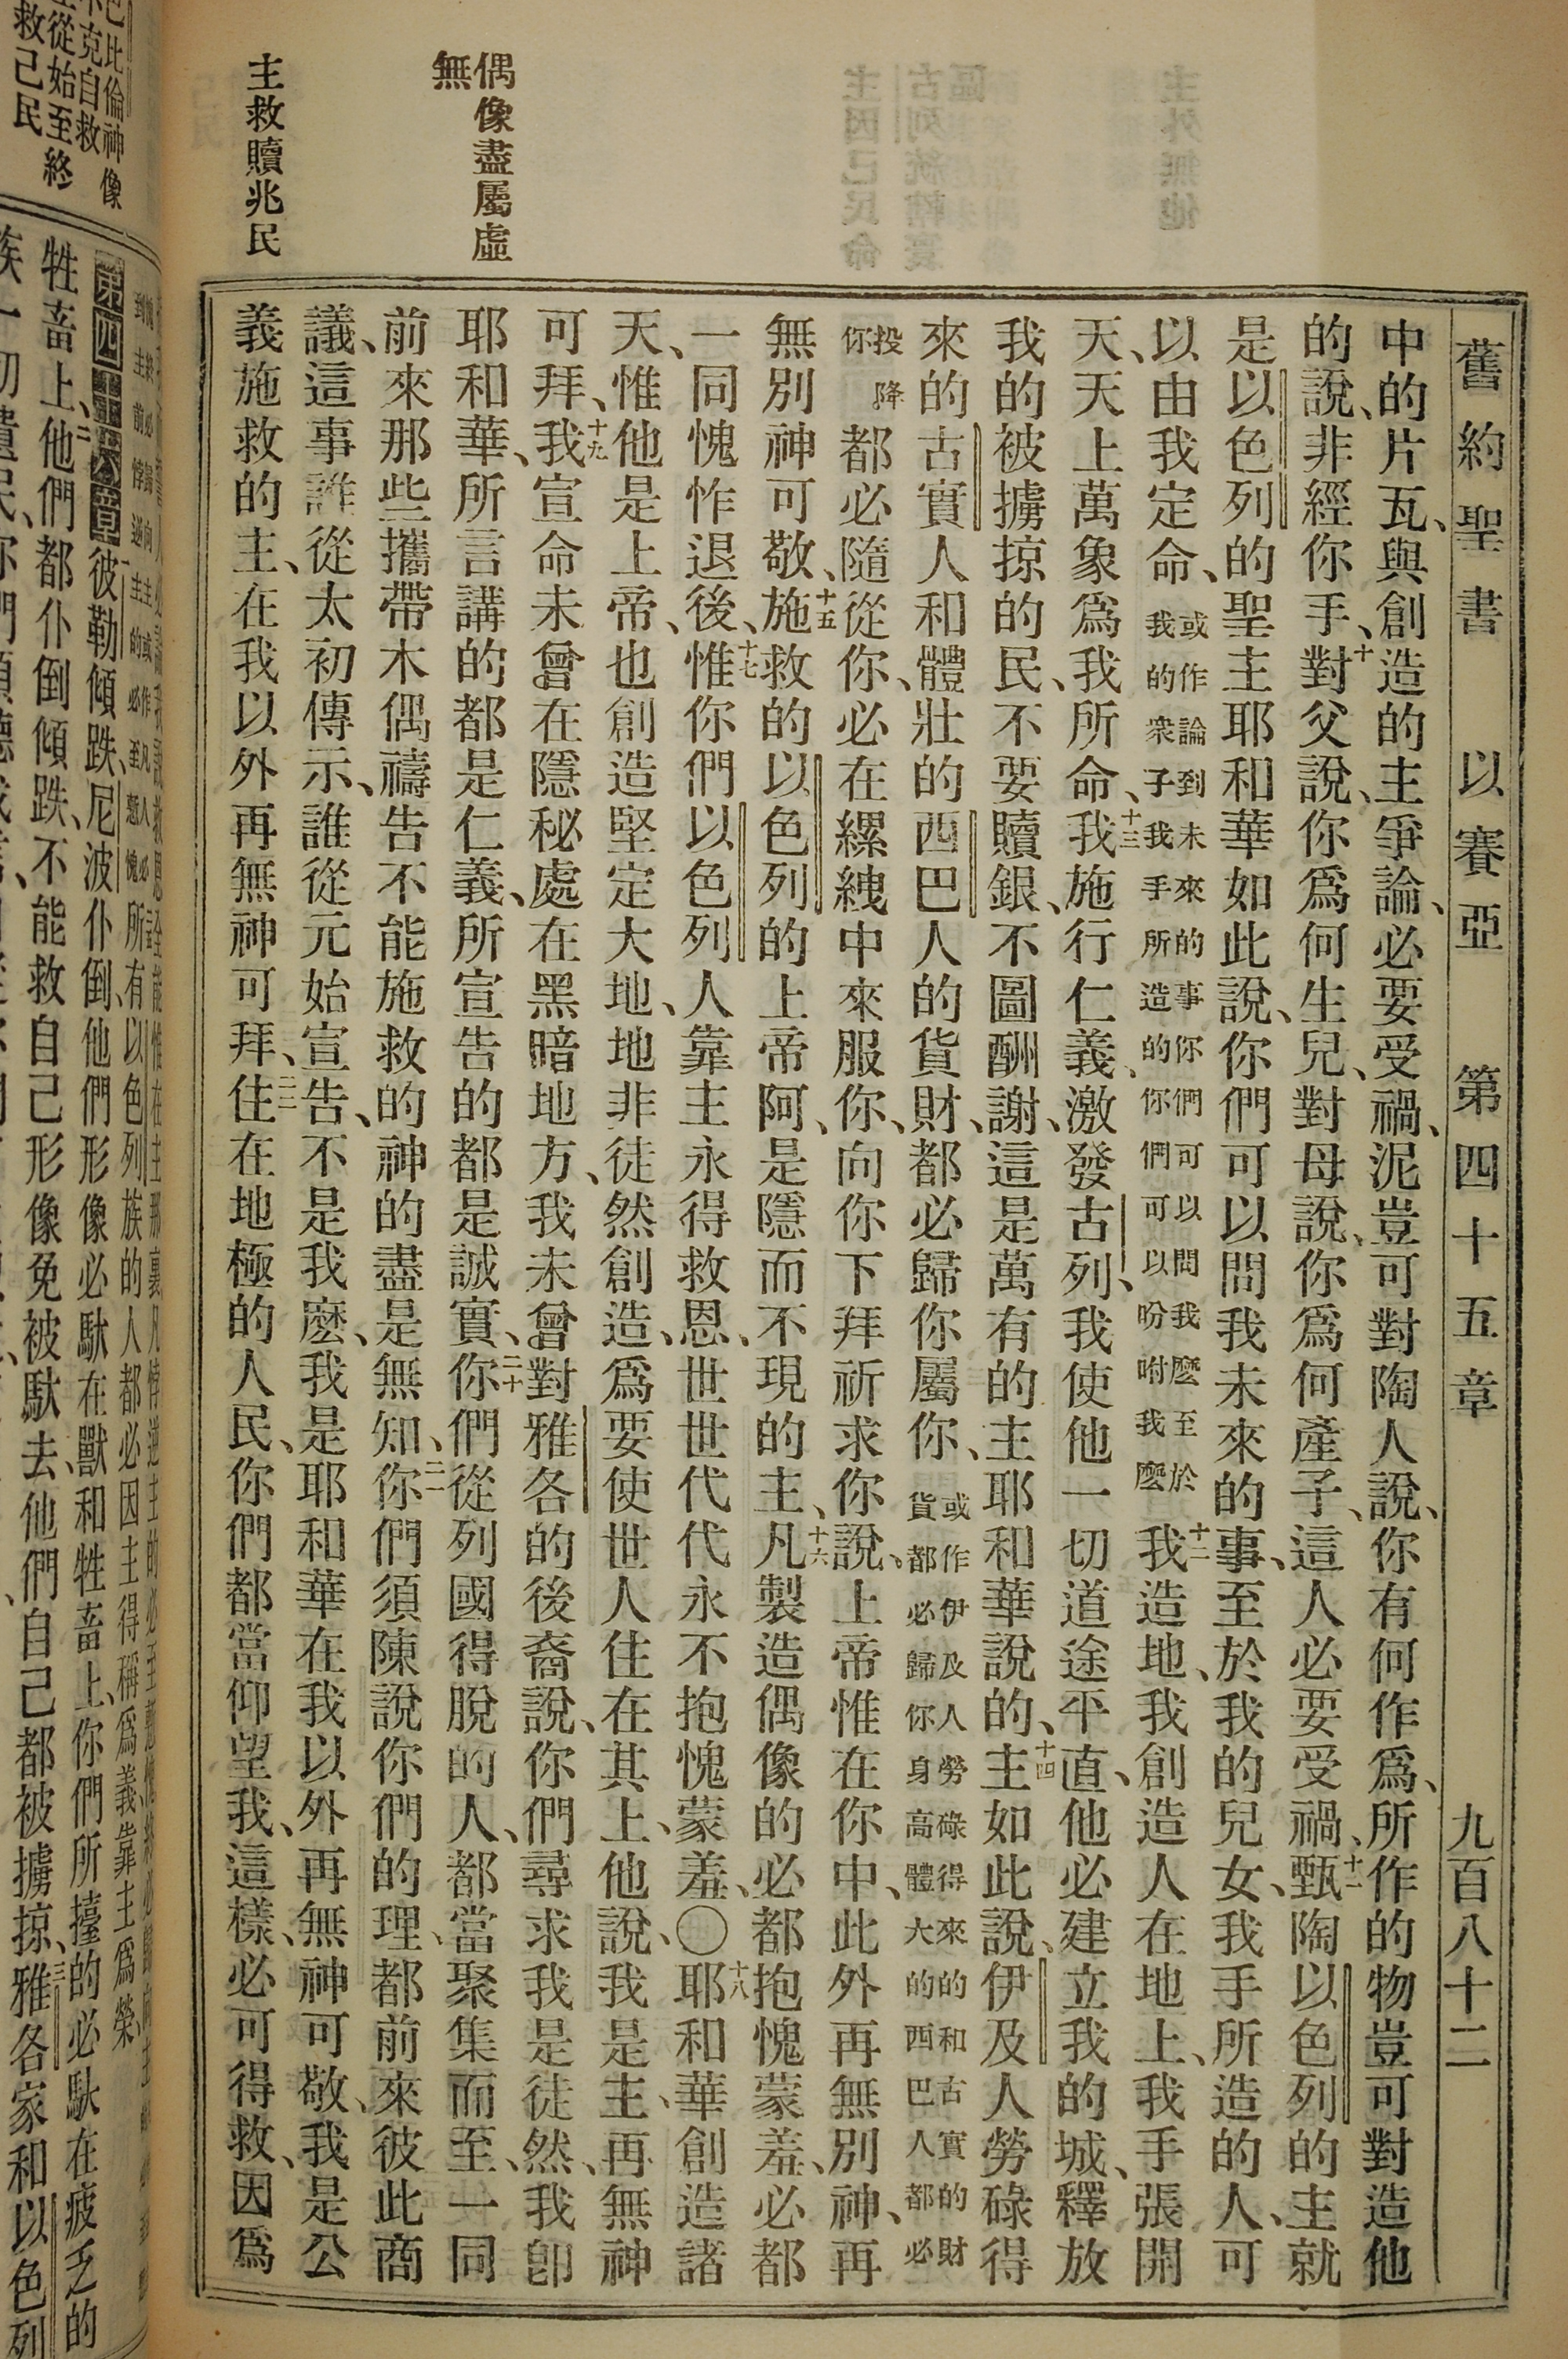 舊約聖書 以賽亞 第四十五章 九百八十二
中的片瓦、與創造的主爭論、必要受禍、泥豈可對陶人說、你有何作爲、所作的物豈可對造他
的說、非經你手、十對父說、你爲何生兒、對母說、你爲何產子、這人必要受禍、十一甄陶以色列的主就
是以色列的聖主耶和華如此說、你們可以問我未來的事、至於我的兒女、我手所造的人、可
以由我定命、或作論到未來的事你們可以問我麽至於我的衆子我手所造的你們可以吩咐我麽十二我造地、我創造人在地上、我手張開
天、天上萬象爲我所命、十三我施行仁義、激發古列、我使他一切道途平直、他必建立我的城、釋放
我的被擄掠的民、不要贖銀、不圖酬謝、這是萬有的主耶和華說的、十四主如此說、伊及人勞碌得
來的古實人和體壯的西巴人的貨財、都必歸你屬你、或作伊及人勞碌得來的和古實的財貨都必歸你身高體大的西巴人都必
投降你都必隨從你、必在縲絏中來服你、向你下拜祈求你說、上帝惟在你中、此外再無別神、再
無別神可敬、十五施救的以色列的上帝阿、是隱而不現的主、十六凡製造偶像的必都抱愧蒙羞、必都
一同愧怍退後、十七惟你們以色列人靠主永得救恩、世世代代永不抱愧蒙羞、〇十八耶和華創造諸
天、惟他是上帝、也創造堅定大地、地非徒然創造、爲要使世人住在其上、他說、我是主、再無神
可拜、十九我宣命未曾在隱秘處在黑暗地方、我未曾對雅各的後裔說、你們尋求我是徒然、我卽
耶和華、所言講的都是仁義、所宣告的都是誠實、二十你們從列國得脫的人、都當聚集而至、一同
前來那些攜帶木偶禱告不能施救的神的盡是無知、二一你們須陳說你們的理、都前來彼此商
議、這事誰從太初傳示、誰從元始宣告、不是我麽、我是耶和華在我以外再無神可敬、我是公
義施救的主、在我以外再無神可拜、二二住在地極的人民、你們都當仰望我、這樣、必可得救、因爲
偶像盡屬虛無
主救贖兆民
所有以色列族的人都必因主得稱爲義靠主爲榮
第四十六章 一彼勒傾跌、尼波仆倒、他們形像必馱在獸和牲畜上、你們所擡的必馱在疲乏的
牲畜上、二他們都仆倒傾跌、不能救自己形像免被馱去、他們自己都被擄掠、三雅各家和以色列